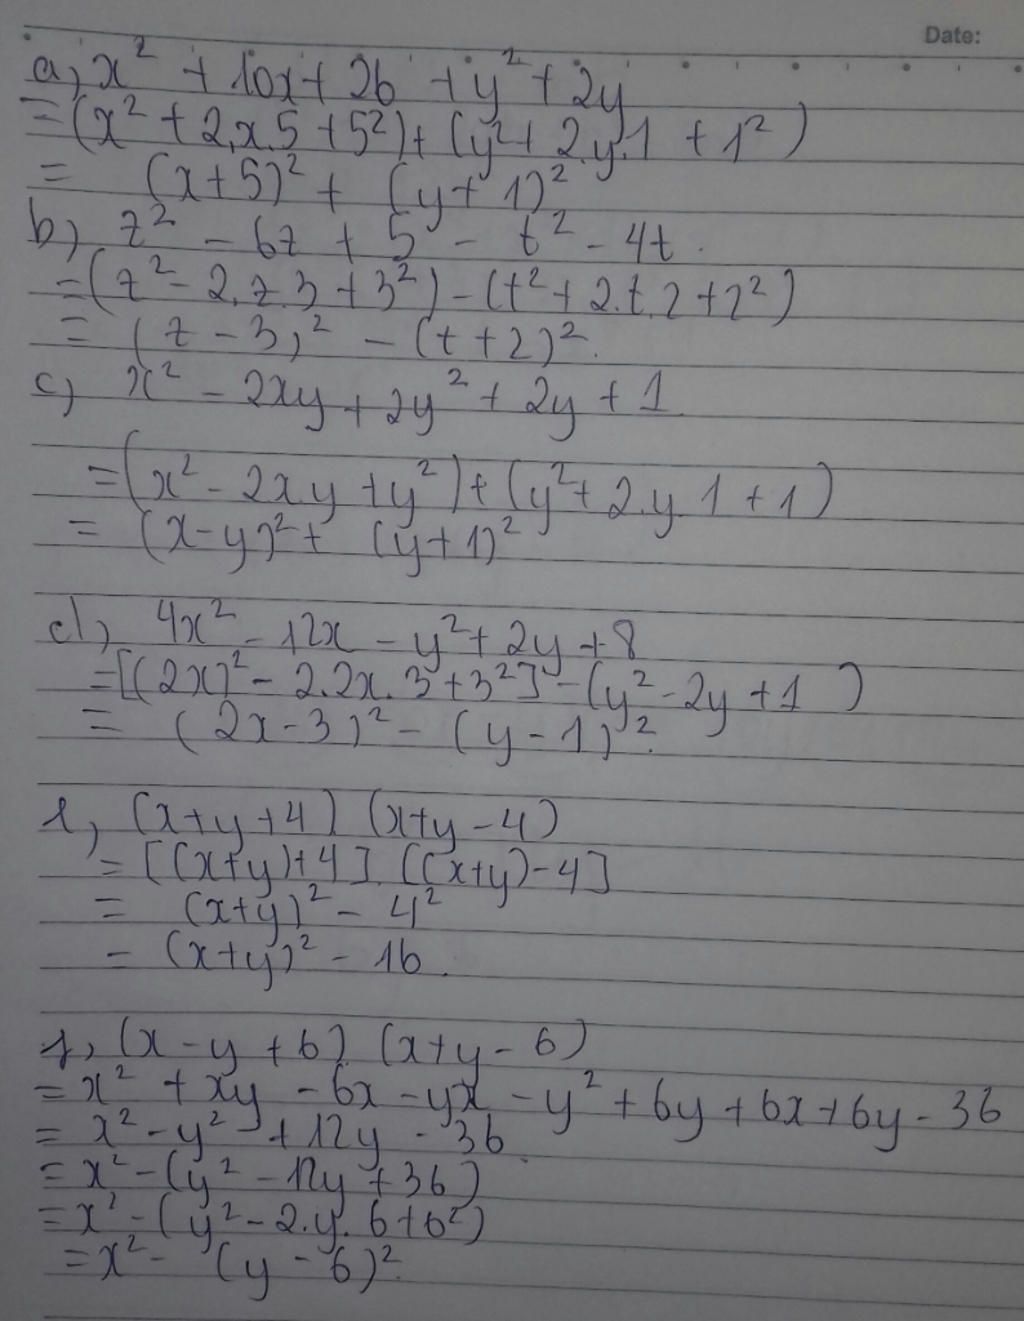 Date:
a, x² + 10x + 26 + y² + 2y
= (x² + 2.x.5 + 5²) + (y² + 2.y.1 + 1²)
= (x+5)² + (y+1)²
b, z² - 6z + 5 - t² - 4t.
= (z² - 2.z.3 + 3²) - (t² + 2.t.2 + 2²)
= (z - 3)² - (t + 2)².
c, x² - 2xy + 2y² + 2y + 1
= (x² - 2xy + y²) + (y² + 2.y.1 + 1)
= (x-y)² + (y+1)²
d, 4x² - 12x - y² + 2y + 8
= [(2x)² - 2.2x.3 + 3²] - (y² - 2y + 1)
= (2x - 3)² - (y - 1)².
e, (x+y+4).(x+y-4)
= [(x+y)+4].[(x+y)-4]
= (x+y)² - 4²
= (x+y)² - 16.
f, (x - y + 6).(x+y - 6)
= x² + xy - 6x - yx - y² + 6y + 6x + 6y - 36
= x² - y² + 12y - 36.
= x² - (y² - 12y + 36)
= x² - (y² - 2.y.6 + 6²)
= x² - (y - 6)².